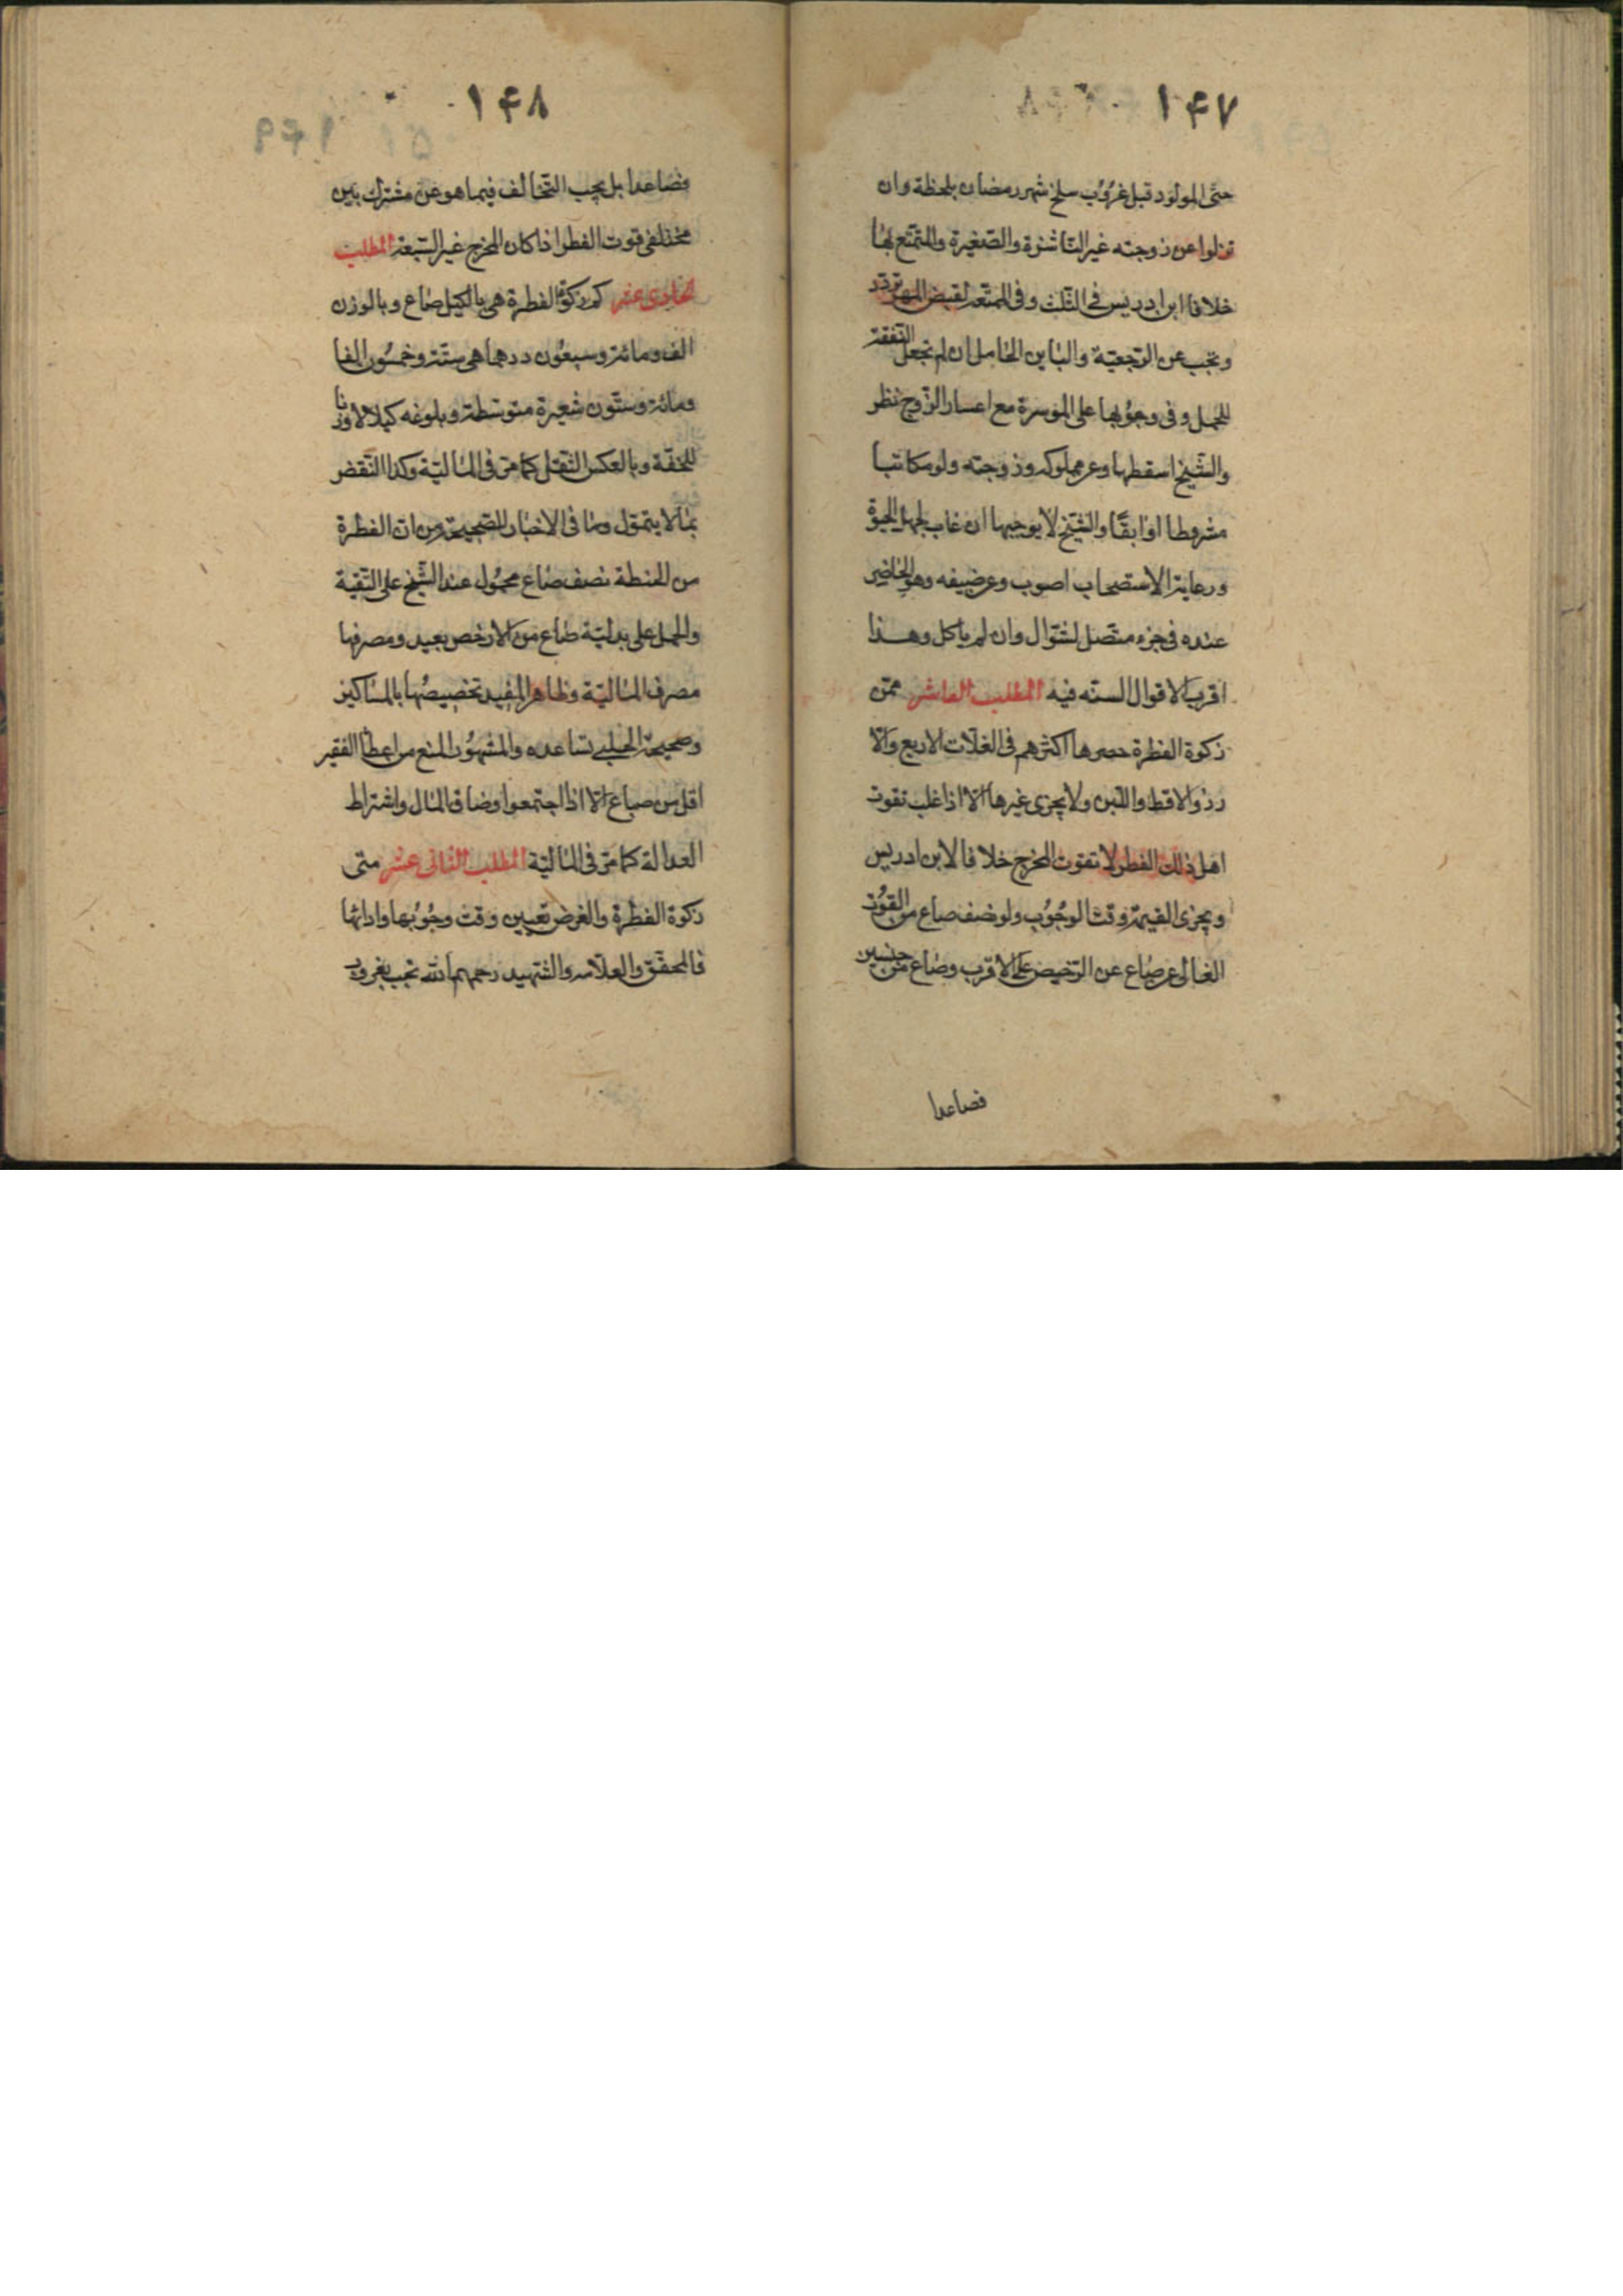 ۱۴۷
حتى المولود قبل غروب سلخ شهر رمضان بلحظة وان
نزلوا عن زوجته غير الناشزة والصغيرة والمتمتع بها
خلافا لابن ادريس فى الثلث وفى الممتعة لقبض المهر تردد
وتجب عن الرجعية والباين الحامل ان لم تجعل النفقة
للحمل وفى وجوبها على الموسرة مع اعسار الزوج نظر
والشيخ اسقطها وعن مملوكه وزوجته ولو مكاتبا
مشروطا او ابقا والشيخ لا يوجبها ان غاب لجهل الحيوة
ورعاية الاستصحاب اصوب وعن ضيفه وهو الحاضر
عنده فى جزء متصل لشوال وان لم ياكل وهذا
اقرب الاقوال السته فيه المطلب العاشر ممن
زكوة الفطرة حصرها اكثرهم فى الغلات الاربع والا
رز والاقط واللبن ولا يجزى غيرها الا اذا غلب تقوت
اهل ذلك القطر لا تقوت المخرج خلافا لابن ادريس
ويجزى القيمة وقت الوجوب ولو نصف صاع من القوت
الغالى عن صاع عن الرخيص على الاقرب وصاع من جنسين
فصاعدا
۱۴۸
فصاعدا بل يجب التخالف فيما هو عن مشترك بين
مختلفى قوت الفطر اذا كان المخرج غير السبعة المطلب
الحادى عشر كم زكوة الفطرة هى بالكيل صاع وبالوزن
الف ومائة وسبعون درهما هى ستة وخمسون الفا
ومائة وستون شعيرة متوسطة وبلوغه كيلا لا وزنا
للخفة وبالعكس للثقل كما مر فى المالية وكذا النقض
بما لا يتمول وما فى الاخبار الصحيحة من ان الفطرة
من الحنطة نصف صاع محمول عند الشيخ على التقية
والحمل على بدلية صاع من الارخص بعيد ومصرفها
مصرف المالية وظاهر المفيد تخصيصها بالمساكين
وصحيحة الحلبى تساعده والمشهور المنع من اعطا الفقير
اقل من صاع الا اذا اجتمعوا وضاق المال واشتراط
العدالة كما مر فى المالية المطلب الثانى عشر متى
زكوة الفطرة والغرض تعيين وقت وجوبها وادائها
فالمحقق والعلامه والشهيد رحمهم الله تجب بغروب